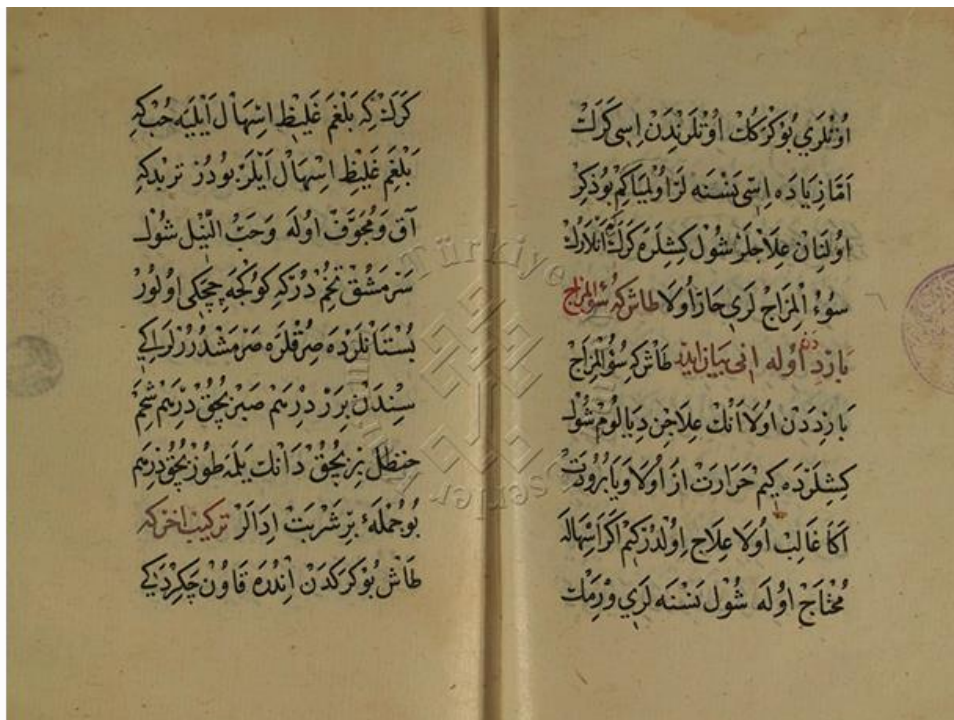 اوُتْلَرِي بُوكَرَكُكْ اوُتْلَرِنْدَنْ اِسِّى كَرَكْ
اَمَّا زِيَادَه اِسِّى نَسْنَه لَرْ اوُلْمِيَا كِمْ بُو ذِكِرْ
اوُلِنَانْ عِلَاجْلَرْ شُولْ كِشِلَرَه كَرَكْ اَنْلَارُكْ
سُوءُ الْمِزَاجْ لَرِي حَارْ اوُلَا طَاشْ كِه سُوءُ الْمِزَاجْ
بَارِدْدَنْ اوُلَه اَنِى بَيَانْ اِيدَرْ طَاشْ كِه سُوءُ الْمِزَاجْ
بَارِدْدَنْ اوُلَا اَنُكْ عِلَاجِنْ دِيَالُومْ شُولْ
كِشِلَرْدَه كِيمْ حَرَارَتْ اَزْ اوُلَا وَيَا بُرُودَتْ
اَكَا غَالِبْ اوُلَا عِلَاجْ اوُلْدُرْ كِيمْ اَكَرْ اِسْهَالَه
مُحْتَاجْ اوُلَه شُولْ نَسْنَه لَرِي وِرْمَكْ
كَرَكْ كِه بَلْغَمِ غَلِيظْ اِسْهَالْ اَيْلَيَه حَبْ كِه
بَلْغَمِ غَلِيظِ اِسْهَالْ اَيْلَرْ بُودُرْ تِرْبِدْ كِه
آقْ وَمُجَوَّفْ اوُلَه وَحَبُّ النِّيلْ شُولْ
سَرْمَشُقْ تُخْمِ دُرْكِه كُوكْجَه چِچَكِى اوُلُورْ
بُسْتَانْلَرْدَه صِرِقْلَرَه صَرْمَشْدُرُرْلَرْ اِيكِى
سِنْدَنْ بِرَرْ دِرْهَمْ صَبِرْ بُچُقْ دِرْهَمْ شَحْمِ
حَنْظَلْ بِرْ بُچُقْ دَانْكْ يِلَه طُوزْ بُچُقْ دِرْهَمْ
بُو جُمْلَهءِ بِرْ شَرْبَتْ اِدَالَرْ تَرْكِيبْ اخَرْ كِه
طَاشِ بُوكْرَكْدَنْ اِنْدُرَه قَاوُنْ چَكِرْدَكِى